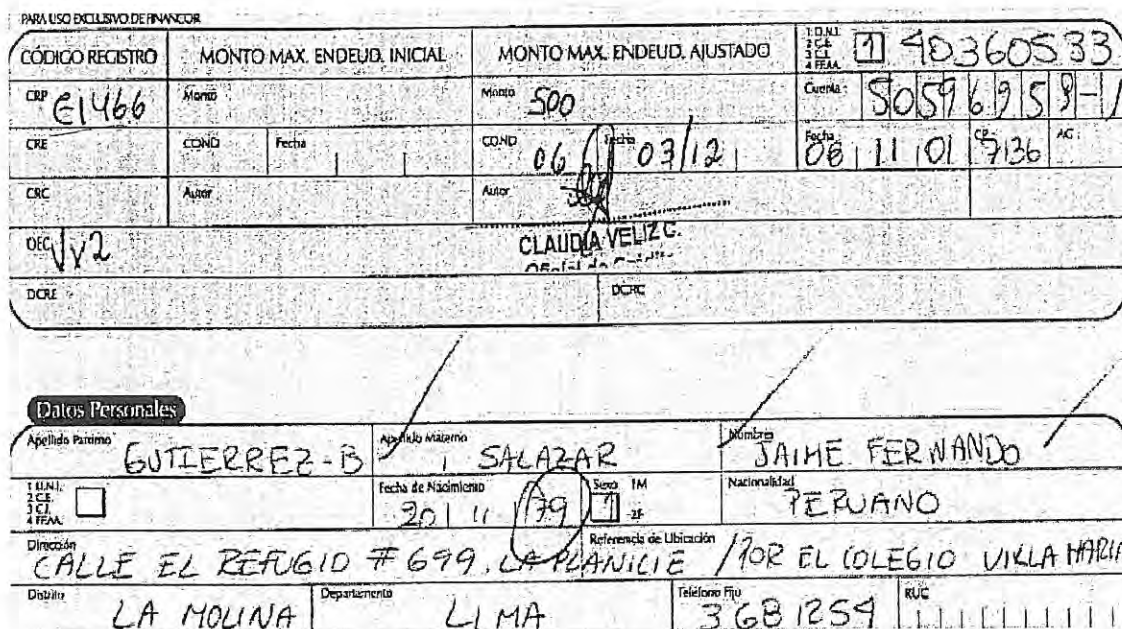 PARA USO EXCLUSIVO DE FINANCOR
CÓDIGO REGISTRO MONTO MAX. ENDEUD. INICIAL MONTO MAX. ENDEUD. AJUSTADO 1 D.N.I. 2 C.E. 3 C.I. 4 FF.AA. 1 40360533
CRP E1466 Monto Monto 500 Cuenta: 50596959-1
CRE COND Fecha COND 06 Fecha 03/12 Fecha 06 11 01 CP 7136 AG
CRC Autor Autor
OEC VV2 CLAUDIA VELIZ C.
DCRE DCRC
Datos Personales
Apellido Paterno GUTIERREZ-B Apellido Materno SALAZAR Nombres JAIME FERNANDO
1 D.N.I. 2 C.E. 3 C.I. 4 FF.AA. Fecha de Nacimiento 20 11 79 Sexo 1M 2F 1 Nacionalidad PERUANO
Dirección CALLE EL REFUGIO # 699, LA PLANICIE Referencia de Ubicación /POR EL COLEGIO VILLA MARIA
Distrito LA MOLINA Departamento LIMA Teléfono Fijo 3681254 RUC